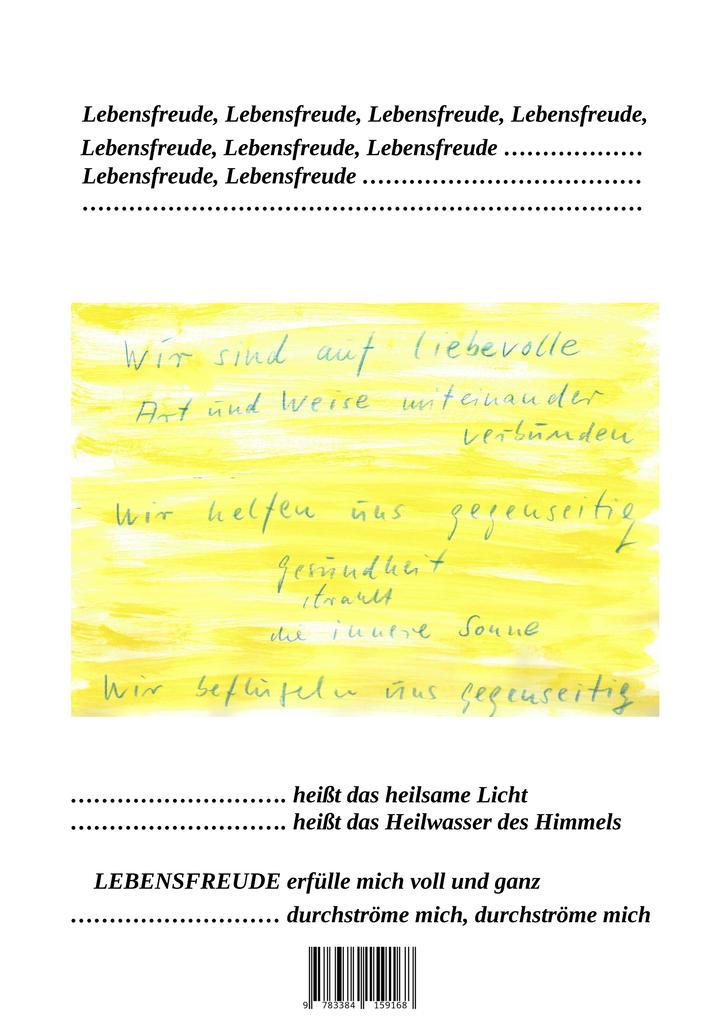 Lebensfreude, Lebensfreude, Lebensfreude, Lebensfreude,
Lebensfreude, Lebensfreude, Lebensfreude ………………
Lebensfreude, Lebensfreude ………………………………
………………………………………………………………
Wir sind auf liebevolle
Art und Weise miteinander
verbunden
Wir helfen uns gegenseitig
Gesundheit
strahlt
die innere Sonne
Wir beflügeln uns gegenseitig
………………………. heißt das heilsame Licht
………………………. heißt das Heilwasser des Himmels
LEBENSFREUDE erfülle mich voll und ganz
……………………… durchströme mich, durchströme mich
9 783384 159168